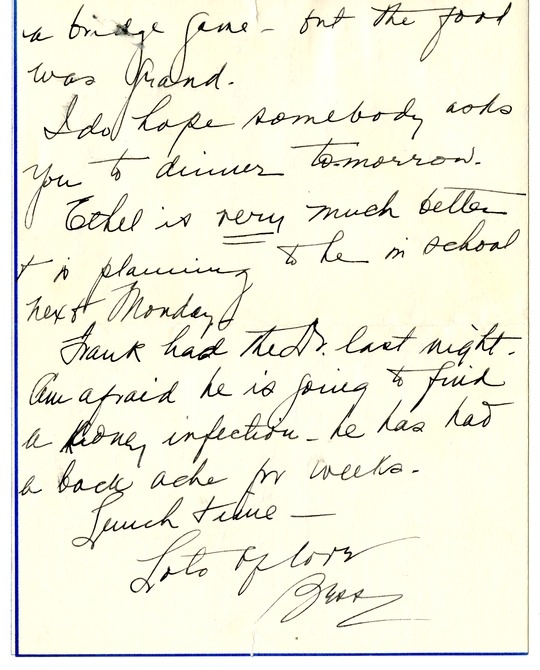 a bridge game - but the food
was grand.
I do hope somebody asks
you to dinner tomorrow.
Ethel is very much better
+ is planning to be in school
next Monday.
Frank had the Dr. last night.
Am afraid he is going to find
a kidney infection - he has had
a back ache for weeks.
Lunch time -
Lots of love
Bess